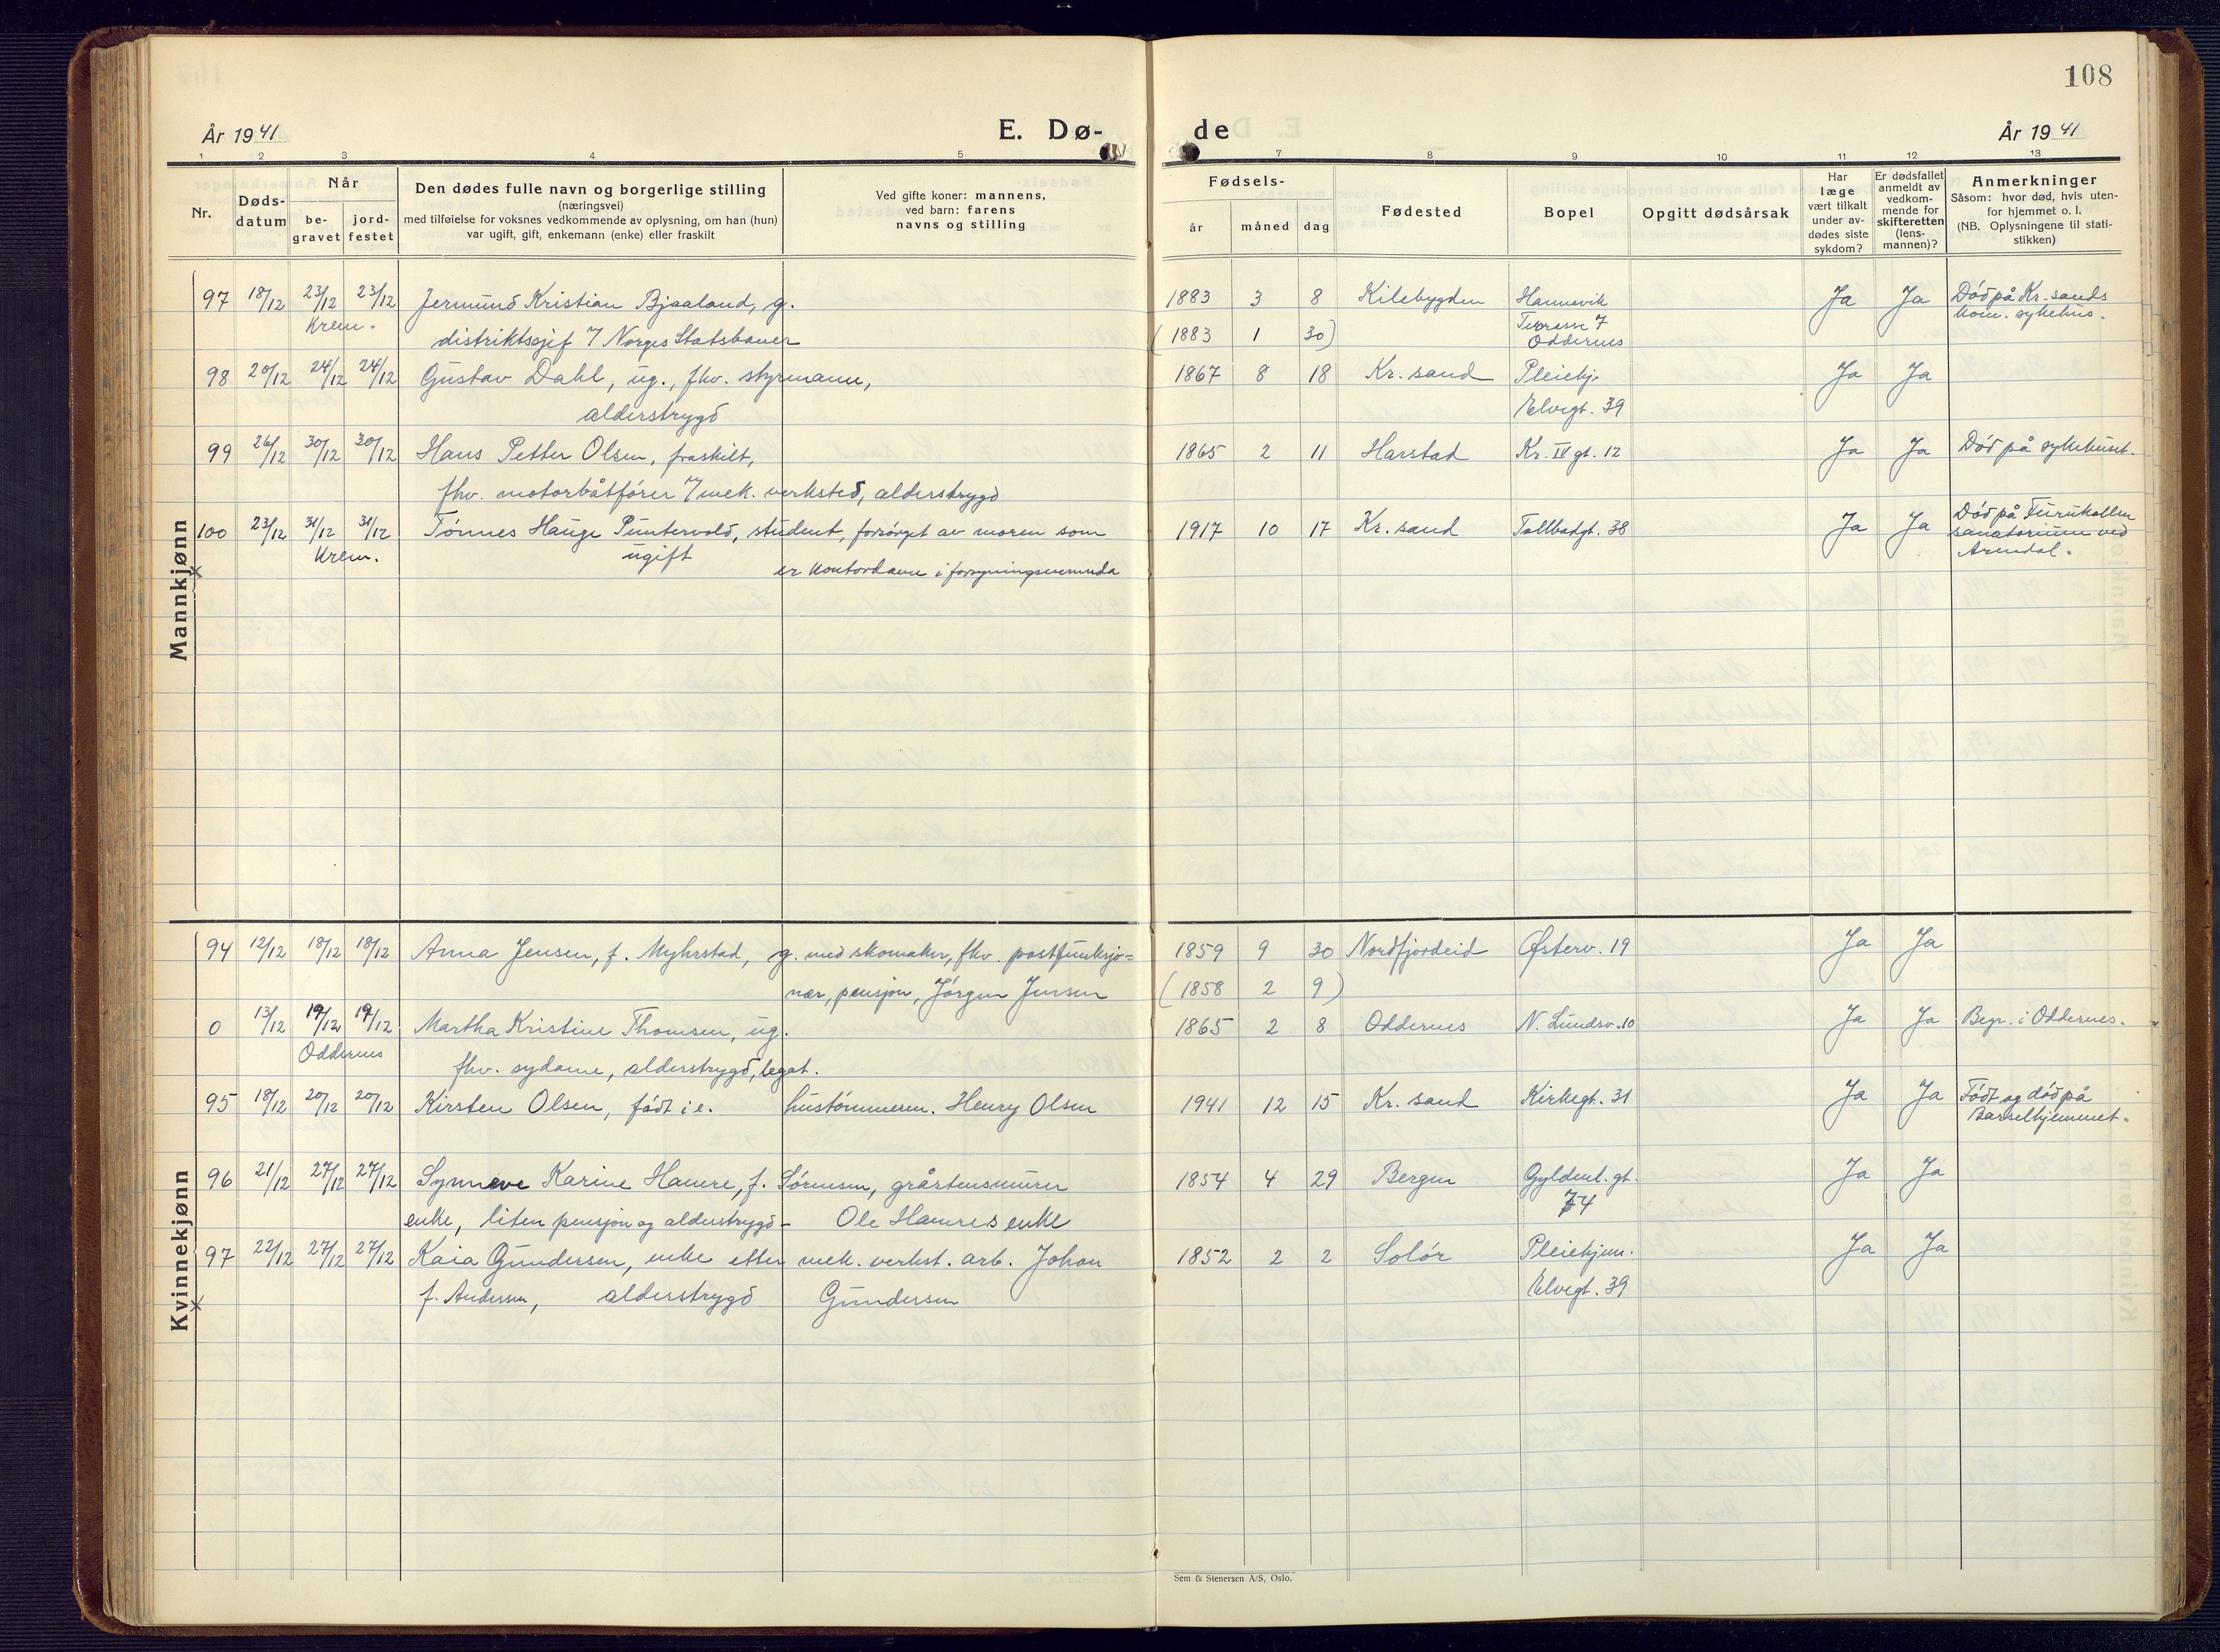 108
År 1941
E. Dø-
de
År 1941
1 2 3 4 5
7 8 9 10 11 12 13
Nr.
Døds-
datum
Når
be-
gravet
jord-
festet
Den dødes fulle navn og borgerlige stilling
(næringsvei)
med tilføielse for voksnes vedkommende av oplysning, om han (hun)
var ugift, gift, enkemann (enke) eller fraskilt
Ved gifte koner: mannens,
ved barn: farens
navns og stilling
Fødsels-
år måned dag
Fødested
Bopel
Opgitt dødsårsak
Har
læge
vært tilkalt
under av-
dødes siste
sykdom?
Er dødsfallet
anmeldt av
vedkom-
mende for
skifteretten
(lens-
mannen)?
Anmerkninger
Såsom: hvor død, hvis uten-
for hjemmet o. l.
(NB. Oplysningene til stati-
stikken)
Mannkjønn
97 18/12 23/12 23/12 Jermund Kristian Bjaaland, g. 1883 3 8 Kilebygden Hannevik Ja Ja Død på Kr.sands
Krem. distriktssjef v/ Norges Statsbaner (1883 1 30) Terrasse 7 kom. sykehus.
Oddernes
98 20/12 24/12 24/12 Gustav Dahl, ug., fhv. styrmann, 1867 8 18 Kr.sand Pleiehj. Ja Ja
alderstrygd Elvegt. 39
99 26/12 30/12 30/12 Hans Petter Olsen, fraskilt, 1865 2 11 Harstad Kr. IV gt. 12 Ja Ja Død på sykehuset.
fhv. motorbåtfører v/ mek. verksted, alderstrygd
100 23/12 31/12 31/12 Tønnes Hauge Puntervold, student, forsørget av moren som 1917 10 17 Kr.sand Tollbodgt. 38 Ja Ja Død på Furukollen
Krem. ugift er kontordame i forsyningsnemnda sanatorium ved
Arendal.
Kvinnekjønn
94 12/12 18/12 18/12 Anna Jensen, f. Myhrstad, g. med skomaker, fhv. postfunksjo- 1859 9 30 Nordfjordeid Østerv. 19 Ja Ja
nær, pensjon, Jørgen Jensen (1858 2 9)
0 13/12 19/12 19/12 Martha Kristine Thomsen, ug. 1865 2 8 Oddernes N. Lundsv. 10 Ja Ja Begr. i Oddernes.
Oddernes fhv. sydame, alderstrygd, legat.
95 18/12 20/12 20/12 Kirsten Olsen, født i e. hustømmerm. Henry Olsen 1941 12 15 Kr.sand Kirkegt. 31 Ja Ja Født og død på
Barselhjemmet.
96 21/12 27/12 27/12 Synneve Karine Hamre, f. Sørensen, gråstensmurer 1854 4 29 Bergen Gyldenl. gt. Ja Ja
enke, liten pensjon og alderstrygd - Ole Hamres enke 74
97 22/12 27/12 27/12 Kaia Gundersen, enke etter mek. verkst. arb. Johan 1852 2 2 Solør Pleiehjem. Ja Ja
f. Andersen, alderstrygd Gundersen Elvegt. 39
Sem & Stenersen A/S, Oslo.